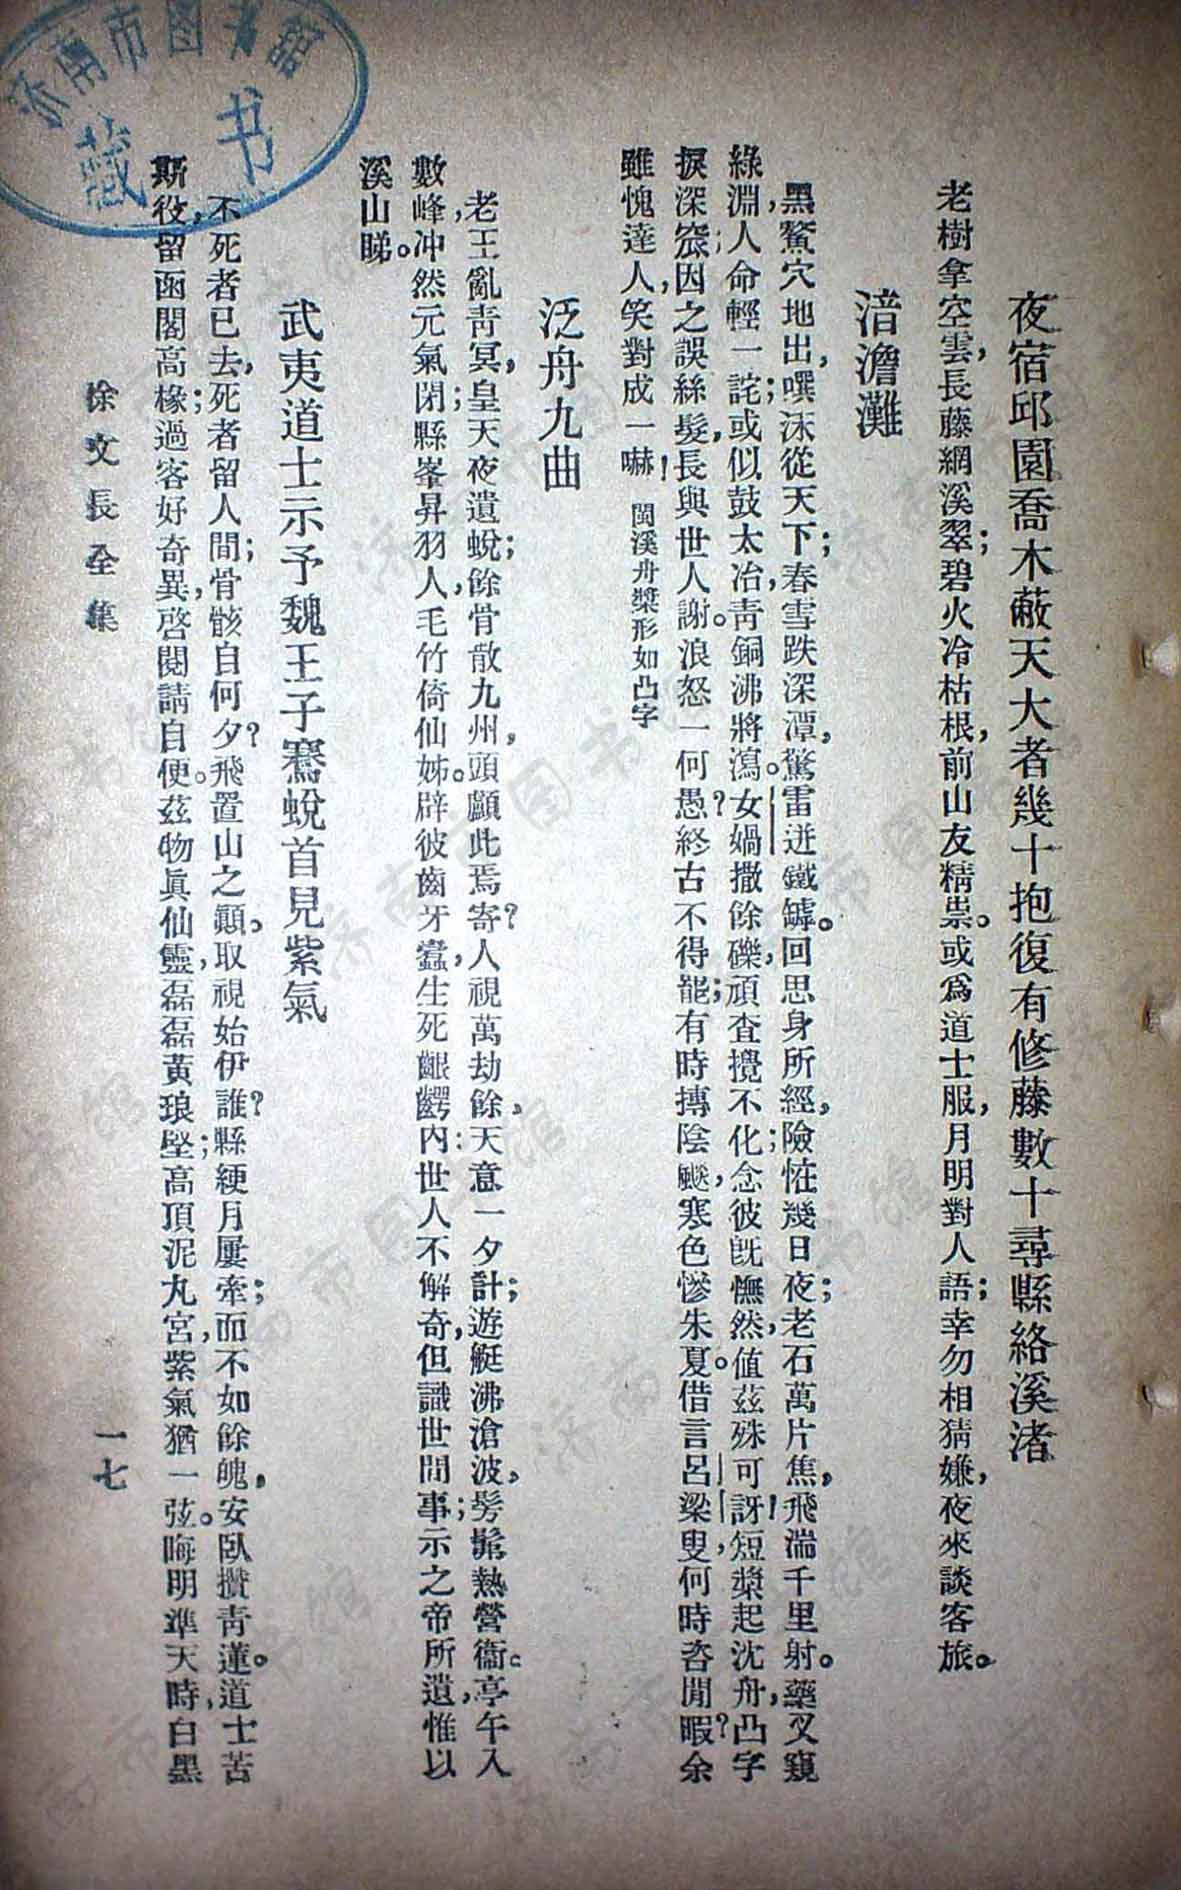 夜宿邱園喬木蔽天大者幾十抱復有修藤數十尋縣絡溪渚
老樹拿空雲，長藤網溪翠；碧火冷枯根，前山友精祟。或爲道士服，月明對人語；幸勿相猜嫌，夜來談客旅。
湆澹灘
黑鰲穴地出，噀沫從天下；春雪跌深潭，驚雷迸鐵罅。回思身所經，險怪幾日夜；老石萬片焦，飛湍千里射。藥叉窺
綠淵，人命輕一詫；或似鼓太冶，青銅沸將瀉。女媧撒餘礫，頑查攪不化；念彼旣憮然，値茲殊可訝！短槳起沈舟，凸字
捩深窾；因之誤絲髮，長與世人謝。浪怒一何愚？終古不得罷；有時摶陰颷，寒色慘朱夏。借言呂梁叟，何時咨閒暇？余
雖愧達人，笑對成一嚇！ 閩溪舟槳形如凸字
泛舟九曲
老王亂青冥，皇天夜遺蛻；餘骨散九州，頭顱此焉寄？人視萬劫餘，天意一夕計；遊艇沸滄波，髣髴熱營衞。亭午入
數峰，冲然元氣閉；縣峯昇羽人，毛竹倚仙姊。辟彼齒牙蠹，生死齦齶內：世人不解奇，但識世間事；示之帝所遺，惟以
溪山睇。
武夷道士示予魏王子騫蛻首見紫氣
不死者已去，死者留人間；骨骸自何夕？飛置山之顚。取視始伊誰？縣綆月屢牽；而不如餘魄，安臥攢青蓮。道士苦
斯役，留函閣高椽；過客好奇異，啓閱請自便。茲物眞仙靈，磊磊黃琅堅；高頂泥丸宮，紫氣猶一弦。晦明準天時，白黑
徐文長全集
一七
济南市图书馆
藏书